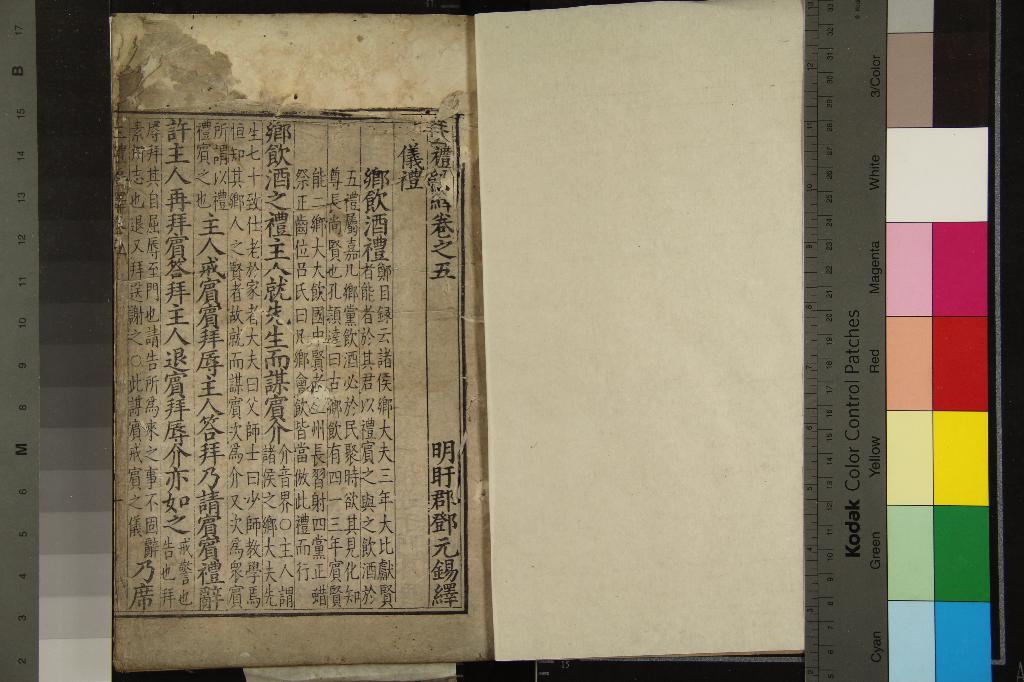 禮繹卷之五
明盱郡鄧元錫繹
儀禮
鄉飲酒禮 鄭目録云諸侯鄉大夫三年大比獻賢
者能者於其君以禮賓之與之飲酒於
五禮屬嘉凡鄉黨飲酒必於民聚時欲其見化知
尊長尚賢也孔頴達曰古鄉飲有四一三年賓賢
能二鄉大夫飲國中賢者三州長習射四黨正蜡
祭正齒位吕氏曰凡鄉會飲皆當倣此禮而行
鄉飲酒之禮主人就先生而謀賓介 介音界○主人謂
諸侯之鄉大夫先
生七十致仕老於家者大夫曰父師士曰少師教學焉
恒知其鄉人之賢者故就而謀賓次為介又次為衆賓
所謂以禮
禮賓之也
主人戒賓賓拜辱主人答拜乃請賓賓禮辭
許主人再拜賓答拜主人退賓拜辱介亦如之 戒警也
告也拜
辱拜其自屈辱至門也請告所為來之事不固辭
素所志也退又拜送謝之○此謀賓戒賓之儀
乃席
Kodak Color Control Patches
3/Color
White
Magenta
Red
Yellow
Green
Cyan
B
M
A